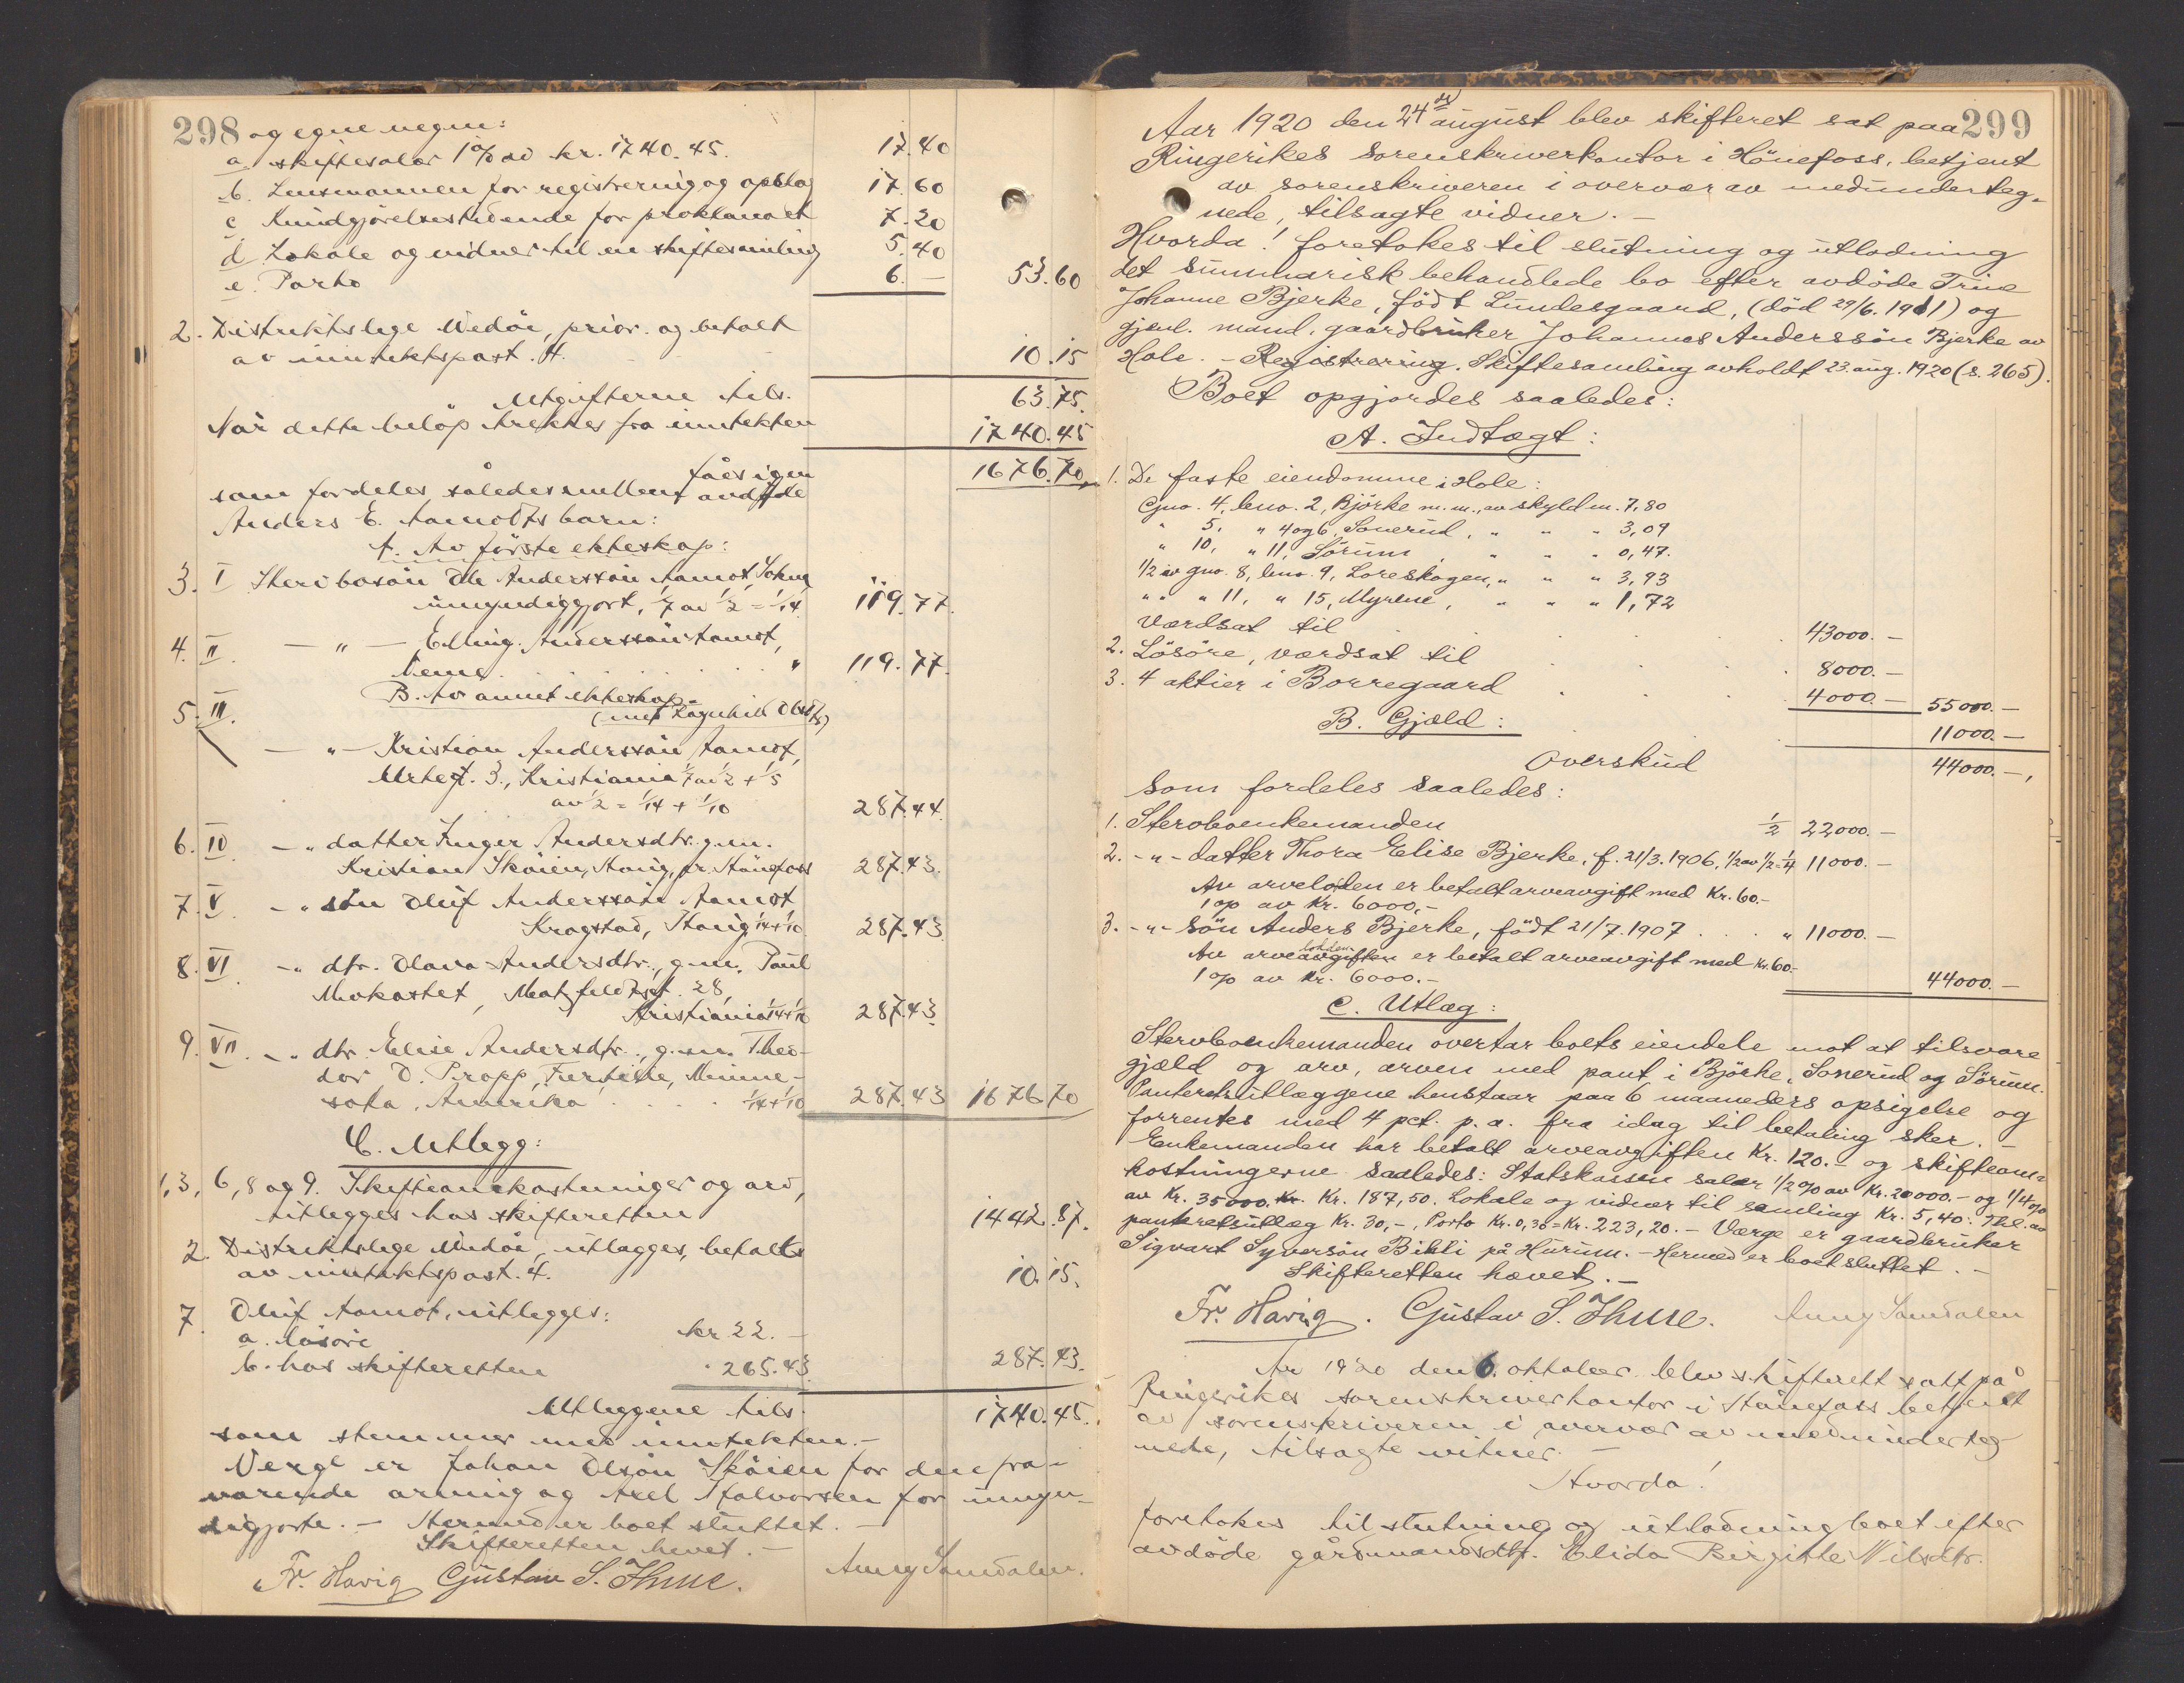 298 og egne vegne:
a. skiftesalær 1 % av kr. 1740.45. 17.40
b. Lensmannen for registrering og opslag 17.60
c Kundgjörelsestidende for proklamaet 7.20
d Lokale og vidner til en skiftesamling 5.40
e. Porto 6.— 53.60
2. Distriktslege , prior. og betalt
av inntektspost. 4. 10.15
Utgifterne tils. 63.75.
Når dette belöp trekkes fra inntekten 1740.45
fåes igjen 1676.70
som fordeles således mellem avdöde
Anders E. Aamodts barn:
A. Av förste ekteskap:
3. I Stervbosön Ole Anderssön Aamot,
umyndiggjort, 1/7 av 1/2 = 1/14 119.77.
4. II. — " — Elling Anderssön Aamot,
" 119.77.
B. Av annet ekteskap
(med Ragnhild Olsdtr)
5. III.
— " — Kristian Anderssön Aamot,
Urtegt. 3., Kristiania 1/7 av 1/2 + 1/5
av 1/2 = 1/14 + 1/10 287.44.
6. IV — " datter Inger Andersdtr. g.m.
Kristian Sköien, Haug, pr. Hönefoss 287.43.
7. V. — " sön Oluf Anderssön Aamot
Kragstad, Haug 1/14+1/10 287.43
8. VI — " dtr. Olava Andersdtr., g.m. Paul
Mokastet, Metzfeldtsgt. 28,
Kristiania 1/14+1/10 287.43
9. VII — " dtr. Elise Andersdtr., g.m. Theo-
dor O. Propp, , Minne-
sota, Amerika . . . . 1/14+1/10 287.43 1676.70
C. Utlegg:
1, 3, 6, 8 og 9. Skifteomkostninger og arv,
utlegges hos skifteretten 1442.87.
2. Distriktslege , utlegges, betalt
av inntektspost. 4. 10.15.
7. Oluf Aamot, utlegges:
a. lösöre kr. 22.—
b. hos skifteretten " 265.43. 287.43.
Utleggene tils. 1740.45.
som stemmer med inntekten.—
Verge er Johan Olsön Sköien for den fra-
værende arving og Axel Halvorsen for umyn-
diggjorte.— Hermed er boet sluttet.—
Skifteretten hevet.—
Fr. Havig Gustav S. Thue. Anny Samdalen.
299
Aar 1920 den 24de august blev skifteret sat paa
Ringerikes sorenskriverkontor i Hönefoss, betjent
av sorenskriveren i overvær av medunderteg-
nede, tilsagte vidner.—
Hvorda! foretokes til slutning og utlodning
det summarisk behandlede bo efter avdöde Trine
Johanne Bjerke, födt Lundesgaard, (död 29/6. 1911) og
gjenl. mand, gaardbruker Johannes Anderssön Bjerke av
Hole.— Registrering. Skiftesamling avholdt 23. aug. 1920 (s. 265).
Boet opgjordes saaledes:
A. Indtægt:
1. De faste eiendomme i Hole:
Gno. 4, bno. 2, Björke m. m., av skyld m. 7,80
" 5, " 4 og 6, Sonerud, " " " 3,09
" 10, " 11, Sörum, " " " 0,47.
1/2 av gno. 8, bno. 9, Loreskogen, " " " 3,93
" " " 11, " 15, Myrene, " " " 1,72
Værdsat til . . . . . 43000.—
2. Lösöre, værdsat til . . . 8000.—
3. 4 aktier i Borregaard . . . 4000.— 55000.—
B. Gjæld: . 11000.—
Overskud 44000.—,
som fordeles saaledes:
1. Stervboenkemanden 1/2 22000.—
2. - " - datter Thora Elise Bjerke, f. 21/3. 1906, 1/2 av 1/2 = 1/4 11000.—
Av arvelodden er betalt arveavgift med Kr. 60.-
1 % av Kr. 6000,-
3. - " - sön Anders Bjerke, födt 21/7. 1907 . . . " 11000.—
lodden
Av arveavgiften er betalt arveavgift med Kr. 60.-
1 % av Kr. 6000.— 44000.—
C. Utlæg:
Stervboenkemanden overtar boets eiendele mot at tilsvare
gjæld og arv, arven med pant i Björke, Sonerud og Sörum.
Panteretsutlæggene henstaar paa 6 maaneders opsigelse og
forrentes med 4 pct. p. a. fra idag til betaling sker.—
Enkemanden har betalt arveavgiften Kr. 120.- og skifteom-
kostningerne saaledes: Statskassen salær 1/2 % av Kr. 20000.- og 1/4 %
av Kr. 35000. Kr. Kr. 187,50. Lokale og vidner til samling Kr. 5,40. Thl. av
panteretsutlæg Kr. 30,-, Porto Kr. 0,30 = Kr. 223,20.- Værge er gaardbruker
Sigvart Syversön Bihli på Hurum.— Hermed er boet sluttet.—
Skifteretten hævet.—
Fr. Havig. Gustav S. Thue. Anny Samdalen
År 1920 den 6. oktober blev skifterett satt på
Ringerikes sorenskriverkontor i Hönefoss betjent
av sorenskriveren i overvær av medunderteg-
nede, tilsagte vitner.—
Hvorda!
foretokes til slutning og utlodning boet efter
avdöde gårdmandsdtr. Elida Birgitte Nilsdtr.